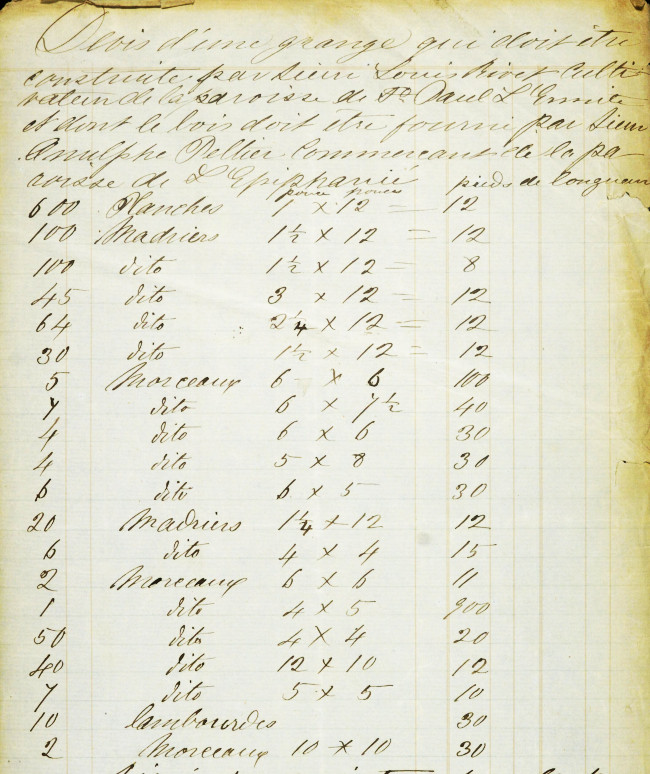 Devis d'une grange qui doit être
construite par Sieur Louis Rivet Culti
vateur de la paroisse de St Paul L'Ermite
et dont le bois doit être fourni par Sieur
Arnulphe Pellier Commercant de la pa
roisse de L'Epiphanie
pouce pouces pieds de longueur
600 Planches 1 x 12 = 12
100 Madriers 1½ x 12 = 12
100 dito 1½ x 12 = 8
45 dito 3 x 12 = 12
64 dito 2¼ x 12 = 12
30 dito 1½ x 12 = 12
5 Morceaux 6 x 6 100
7 dito 6 x 7½ 40
4 dito 6 x 6 30
4 dito 5 x 8 30
6 dito 6 x 5 30
20 Madriers 1¼ x 12 12
6 dito 4 x 4 15
2 Morceaux 6 x 6 11
1 dito 4 x 5 900
50 dito 4 x 4 20
40 dito 12 x 10 12
7 dito 5 x 5 10
10 lambourdes 30
2 Morceaux 10 x 10 30